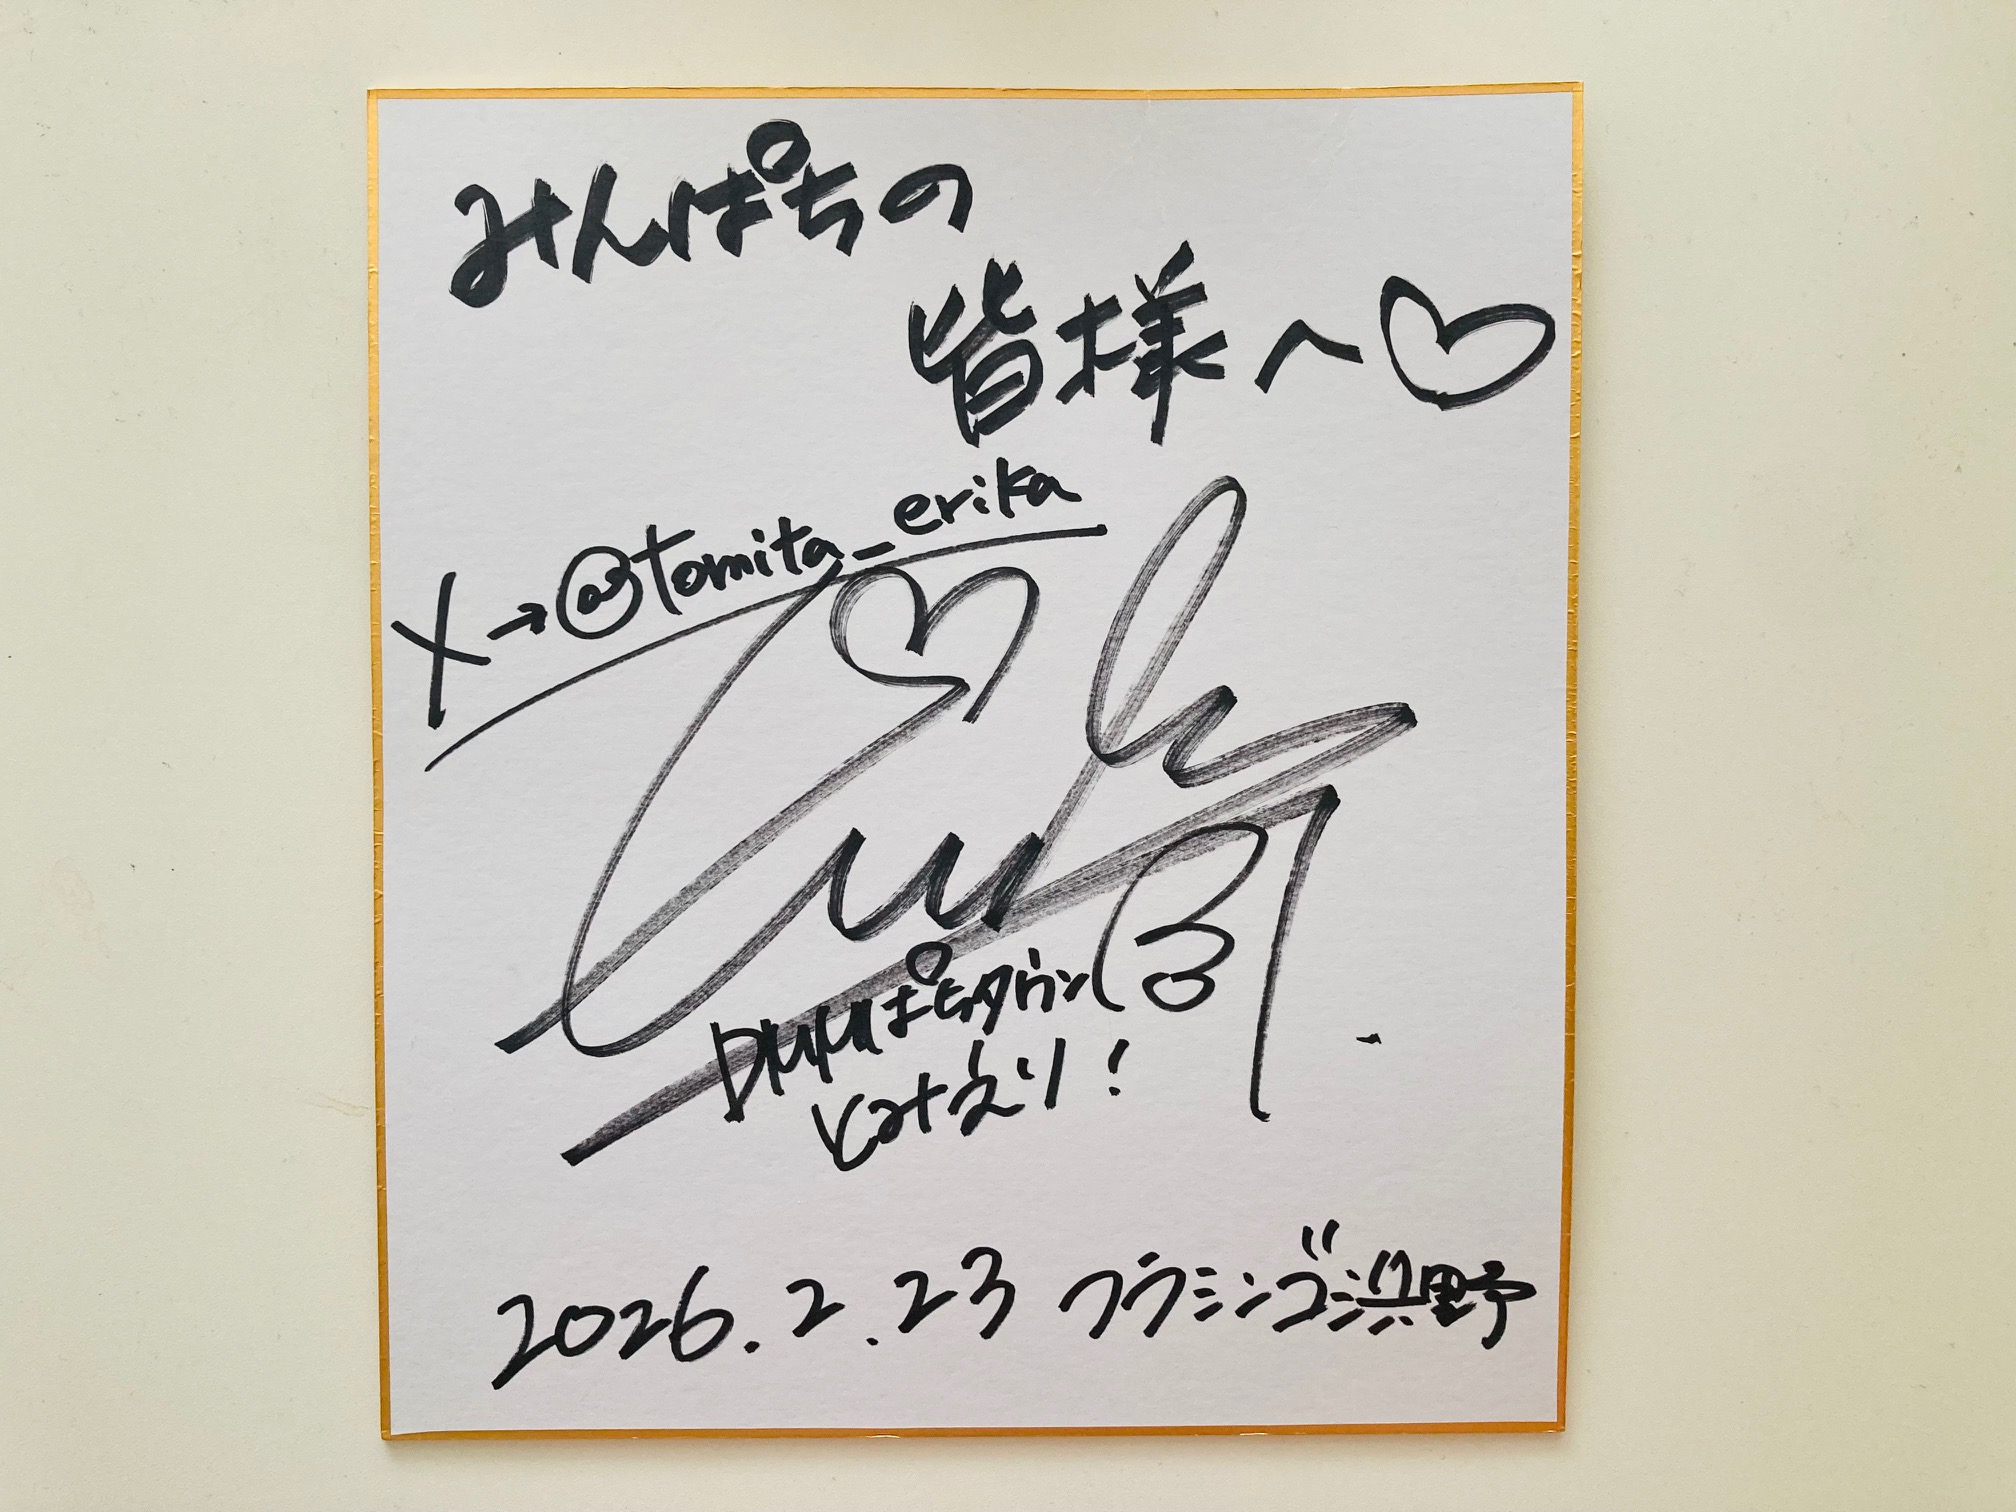 みんぱちの
皆様へ♡
X→@tomita_erika
DMMぱちタウン
とみえり!
2026.2.23 フラミンゴ浜野